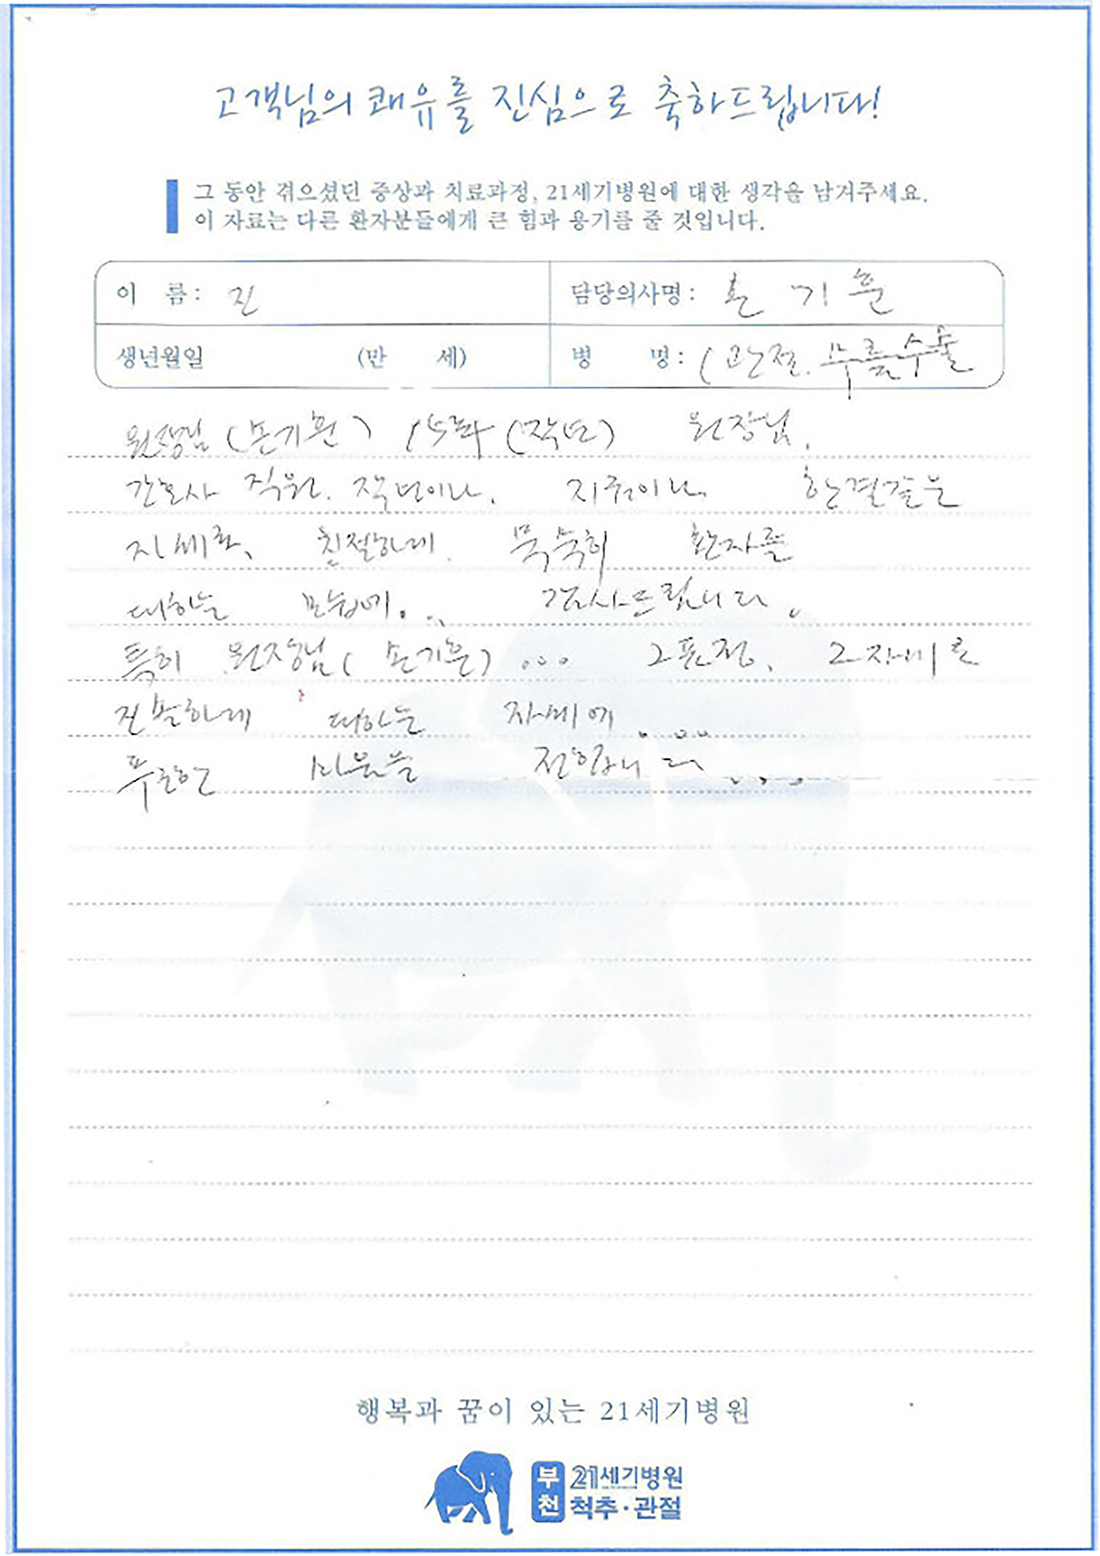 고객님의 쾌유를 진심으로 축하드립니다!
그 동안 겪으셨던 증상과 치료과정, 21세기병원에 대한 생각을 남겨주세요.
이 자료는 다른 환자분들에게 큰 힘과 용기를 줄 것입니다.
이 름 : 진
담당의사명 : 손기훈
생년월일 (만 세)
병 명 : (관절. 무릎수술
원장님 (손기훈) (작년) 원장님.
간호사 직원. 작년이나. 지금이나. 한결같은
자세로. 친절하게. 묵묵히 환자를
대하는 모습에... 감사드립니다.
특히 원장님 (손기훈) ... 그표정. 그자세로
친절하게 대하는 자세에....
푸근한 마음을 전합니다....
행복과 꿈이 있는 21세기병원
부천 21세기병원
척추·관절